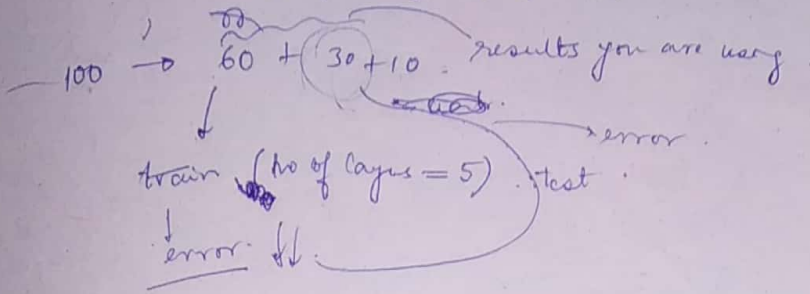 100 → 60 + 30 + 10. results you are using
error.
train (no of layers = 5). test.
error ↓↓.